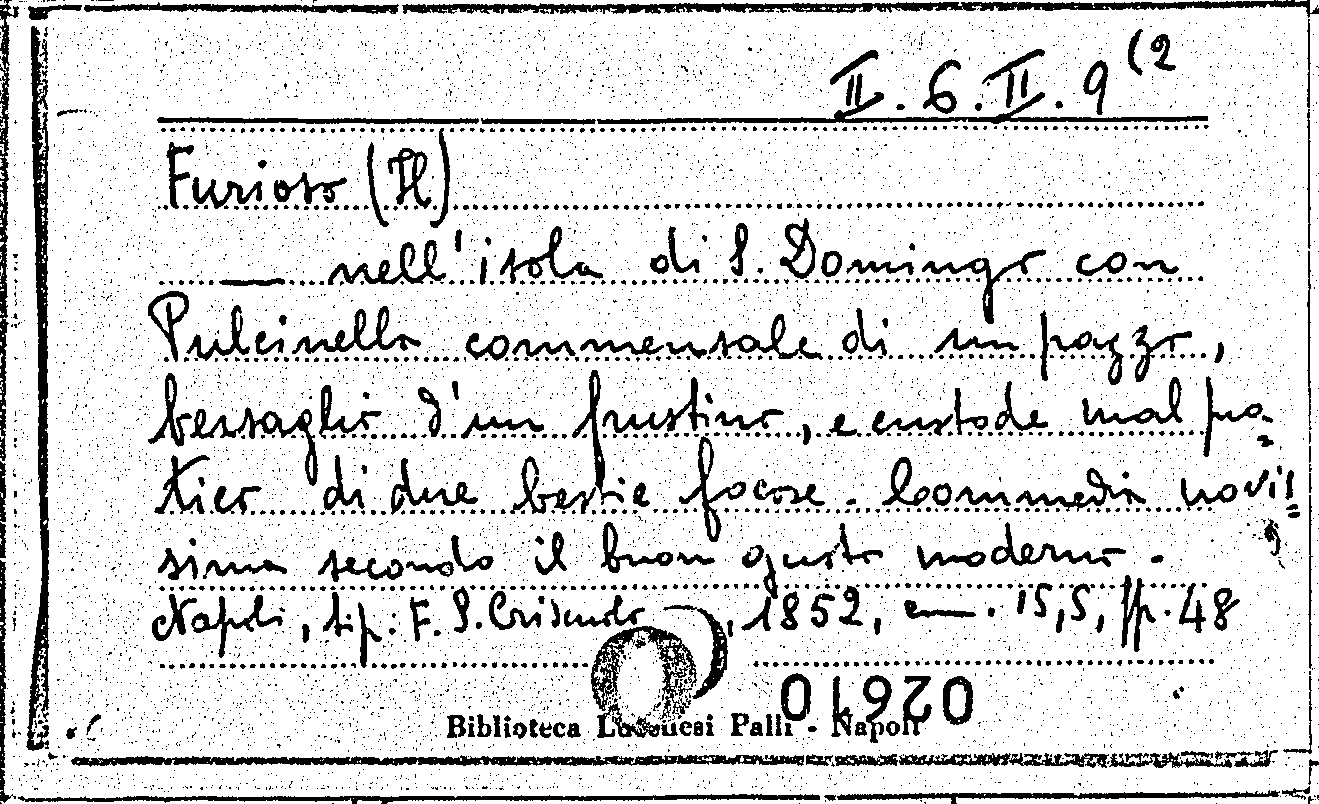 II. 6. II. 9 (2
Furioso (Il)
— nell'isola di S. Domingo con
Pulcinella commensale di un pazzo,
bersaglio d'un frustino, e custode mal pra=
tico di due bestie focose. Commedia novis=
sima secondo il buon gusto moderno.
Napoli, tip: F. S. Criscuolo, 1852, cm. 15,5, pp. 48
02610
Biblioteca Lucchesi Palli - Napoli